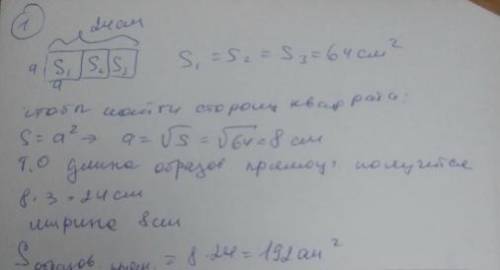 1
24 см
a S₁ S₂ S₃ S₁ = S₂ = S₃ = 64 см²
a
чтобы найти сторону квадрата:
S = a² → a = √S = √64 = 8 см
Т.О длина образов. прямоуг. получится
8 · 3 = 24 см
ширина 8 см
S образов. = 8 · 24 = 192 см²